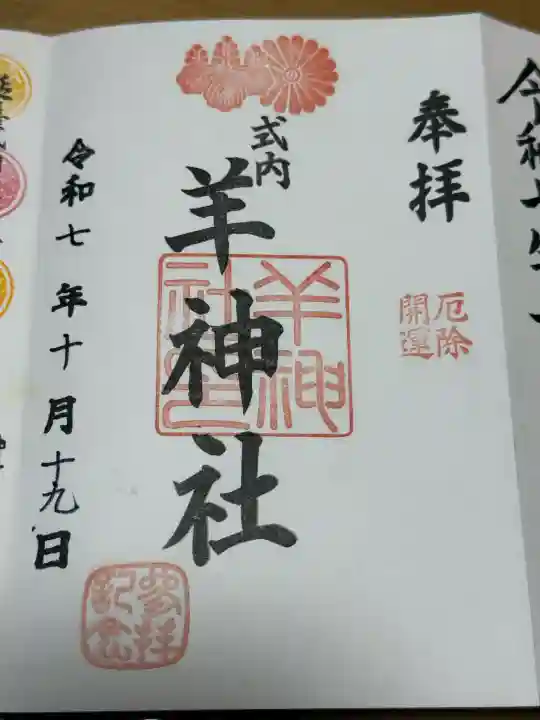 奉拝
厄除
開運
式内
羊神社
羊神
社印
令和七年十月十九日
参拝
記念